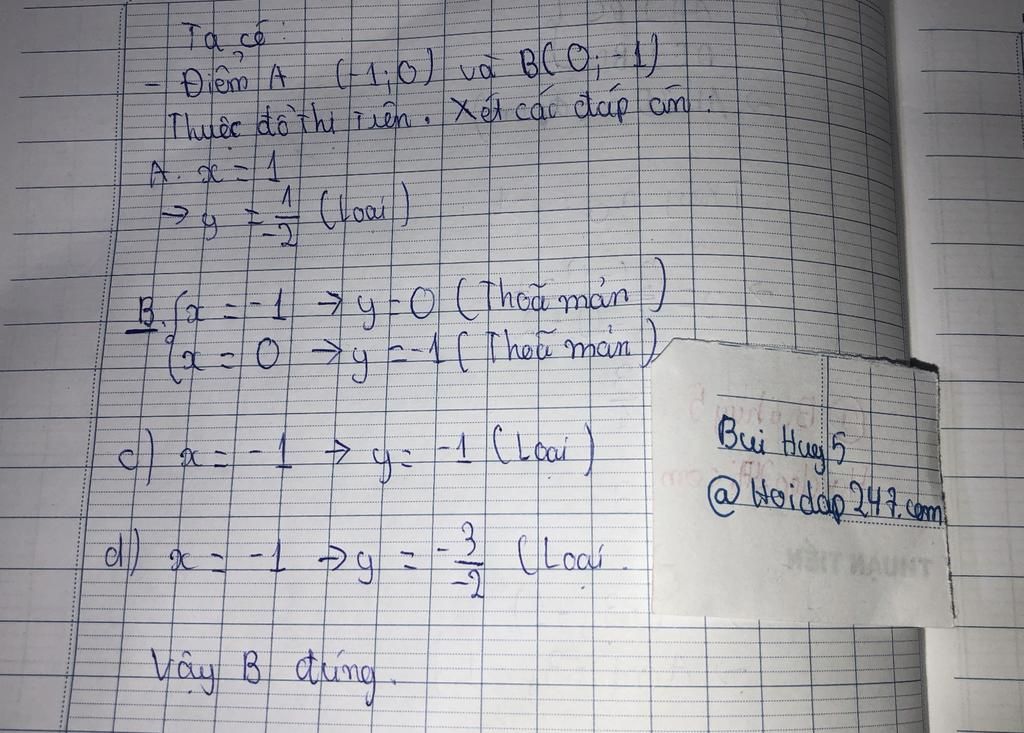 Ta có:
- Điểm A (-1;0) và B(0;-1)
Thuộc đồ thị trên. Xét các đáp án:
A. x = 1
→ y = 1/-2 (Loại)
B. { x = -1 → y = 0 (Thoã mản)
{ x = 0 → y = -1 (Thoã mản)
c) x = -1 → y = -1 (Loại)
d) x = -1 → y = -3/-2 (Loại.
Vậy B đúng.
Bui Huy 5
@Hoidap247.com
THUẬN TIẾN